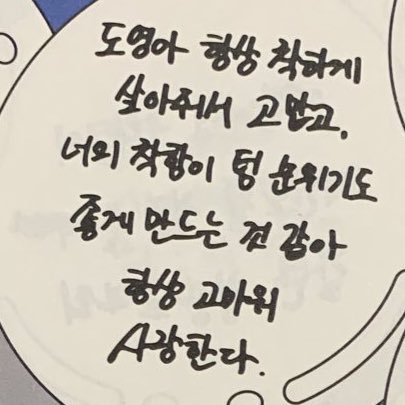 도영아 형상 착하게
살아줘서 고맙고,
너의 착함이 텀 분위기도
좋게 만드는 것 같아
형상 고마워
A랑한다.